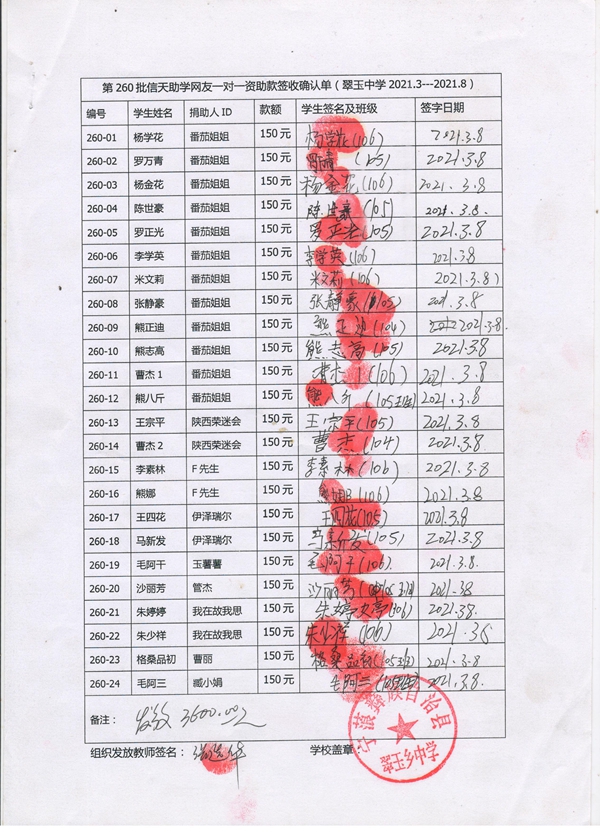 第260批信天助学网友一对一资助款签收确认单（翠玉中学2021.3---2021.8）
编号 学生姓名 捐助人ID 款额 学生签名及班级 签字日期
260-01 杨学花 番茄姐姐 150元 杨学花(106) 2021.3.8
260-02 罗万青 番茄姐姐 150元 (105) 2021.3.8
260-03 杨金花 番茄姐姐 150元 杨金花(106) 2021.3.8
260-04 陈世豪 番茄姐姐 150元 陈世豪(105) 2021.3.8
260-05 罗正光 番茄姐姐 150元 罗正光(105) 2021.3.8
260-06 李学英 番茄姐姐 150元 李学英(106) 2021.3.8
260-07 米文莉 番茄姐姐 150元 米文莉(106) 2021.3.8)
260-08 张静豪 番茄姐姐 150元 张静豪(105) 2021.3.8
260-09 熊正迪 番茄姐姐 150元 熊正迪(104) 2021.3.8.
260-10 熊志高 番茄姐姐 150元 熊志高(105) 2021.3.8
260-11 曹杰1 番茄姐姐 150元 曹杰1(106) 2021.3.8
260-12 熊八斤 番茄姐姐 150元 熊八斤(105班) 2021.3.8
260-13 王宗平 陕西荣迷会 150元 王宗平(105) 2021.3.8
260-14 曹杰2 陕西荣迷会 150元 曹杰(104) 2021.3.8
260-15 李素林 F先生 150元 李素林(106) 2021.3.8
260-16 熊娜 F先生 150元 熊娜(106) 2021.3.8
260-17 王四花 伊泽瑞尔 150元 王四花(105) 2021.3.8
260-18 马新发 伊泽瑞尔 150元 马新发(105) 2021.3.8.
260-19 毛阿干 玉薯薯 150元 毛阿干(106) 2021.3.8.
260-20 沙丽芳 管杰 150元 沙丽芳 2021.3.8
260-21 朱婷婷 我在故我思 150元 朱婷婷(106) 2021.3.8.
260-22 朱少祥 我在故我思 150元 朱少祥(106) 2021.3.8
260-23 格桑品初 曹丽 150元 格桑品初(105班) 2021.3.8
260-24 毛阿三 臧小娟 150元 毛阿三(105班) 2021.3.8.
备注： 发放3600.00元
组织发放教师签名： 学校盖章：
宁蒗彝族自治县
翠玉乡中学